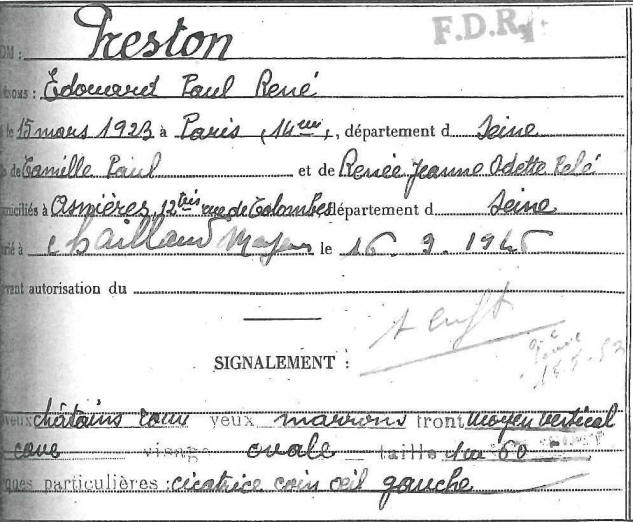 OM : Preston F.D.R.
noms : Edouard Paul René
le 15 mars 1923 à Paris (14eme), département d Seine
s de Camille Paul et de Renée Jeanne Odette Pelé
omiciliés à Asnières, 12tris rue de Colombes département d Seine
rié à Chailland Mayenne le 16 . 9 . 1946
vant autorisation du
1 enft
SIGNALEMENT :
veux châtains yeux marrons front moyen vertical
cave visage ovale taille 1m 60
ques particulières : cicatrice coin œil gauche